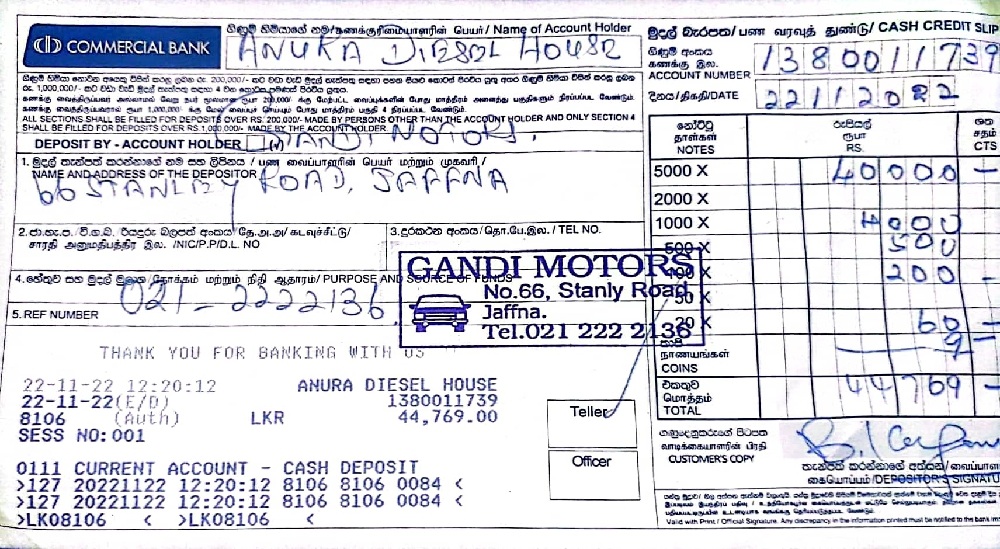 COMMERCIAL BANK
ගිණුම් හිමියාගේ නම/கணக்குரிமையாளரின் பெயர் / Name of Account Holder
ANURA DIESEL HOUSE
ALL SECTIONS SHALL BE FILLED FOR DEPOSITS OVER RS. 200,000/- MADE BY PERSONS OTHER THAN THE ACCOUNT HOLDER AND ONLY SECTION 4
SHALL BE FILLED FOR DEPOSITS OVER RS.1,000,000/- MADE BY THE ACCOUNT HOLDER.
DEPOSIT BY - ACCOUNT HOLDER (✓)
GANDI MOTORS,
1. මුදල් තැන්පත් කරන්නාගේ නම සහ ලිපිනය / பண வைப்பாளரின் பெயர் மற்றும் முகவரி /
NAME AND ADDRESS OF THE DEPOSITOR
66 STANLEY ROAD, JAFFNA
2. ජා.හැ.ප. / වි.ග.බ. රියදුරු බලපත් අංකය/ தே.அ.அ/ கடவுச்சீட்டு/
சாரதி அனுமதிபத்திர இல. /NIC/P.P/D.L. NO
3. දුරකථන අංකය/தொ.பே.இல. / TEL NO.
4. හේතුව සහ මුදල් මූලය /நோக்கம் மற்றும் நிதி ஆதாரம்/ PURPOSE AND SOURCE OF FUNDS
021 - 2222136
5. REF NUMBER
GANDI MOTORS
No.66, Stanly Road
Jaffna.
Tel.021 222 2136
THANK YOU FOR BANKING WITH US
22-11-22 12:20:12 ANURA DIESEL HOUSE
22-11-22(E/D) 1380011739
8106 (Auth) LKR 44,769.00
SESS NO:001
0111 CURRENT ACCOUNT - CASH DEPOSIT
>127 20221122 12:20:12 8106 8106 0084 <
>127 20221122 12:20:12 8106 8106 0084 <
>LK08106 < >LK08106 <
Teller
Officer
මුදල් බැරපත/ பண வரவுத் துண்டு/ CASH CREDIT SLIP
ගිණුම් අංකය
கணக்கு இல.
ACCOUNT NUMBER
1380011739
දිනය/திகதி/DATE
22112022
නෝට්ටු
தாள்கள்
NOTES
රුපියල්
ரூபா
RS.
ශත
சதம்
CTS
5000 X 40000 -
2000 X
1000 X 4000
500 X 500
100 X 200 -
50 X
20 X 60 -
කාසි
நாணயங்கள்
COINS
9 -
එකතුව
மொத்தம்
TOTAL
44769 -
ගනුදෙනුකරුගේ පිටපත
வாடிக்கையாளரின் பிரதி
CUSTOMER'S COPY
තැන්පත් කරන්නාගේ අත්සන/வைப்பா
கையொப்பம்/DEPOSITOR'S SIGNATU
Valid with Print / Official Signature. Any discrepancy in the information printed must be notified to the bank im